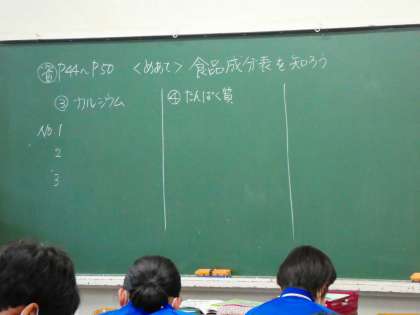 資 P44~P50 <めあて> 食品成分表を知ろう
③ カルシウム ④ たんぱく質
No.1
2
3